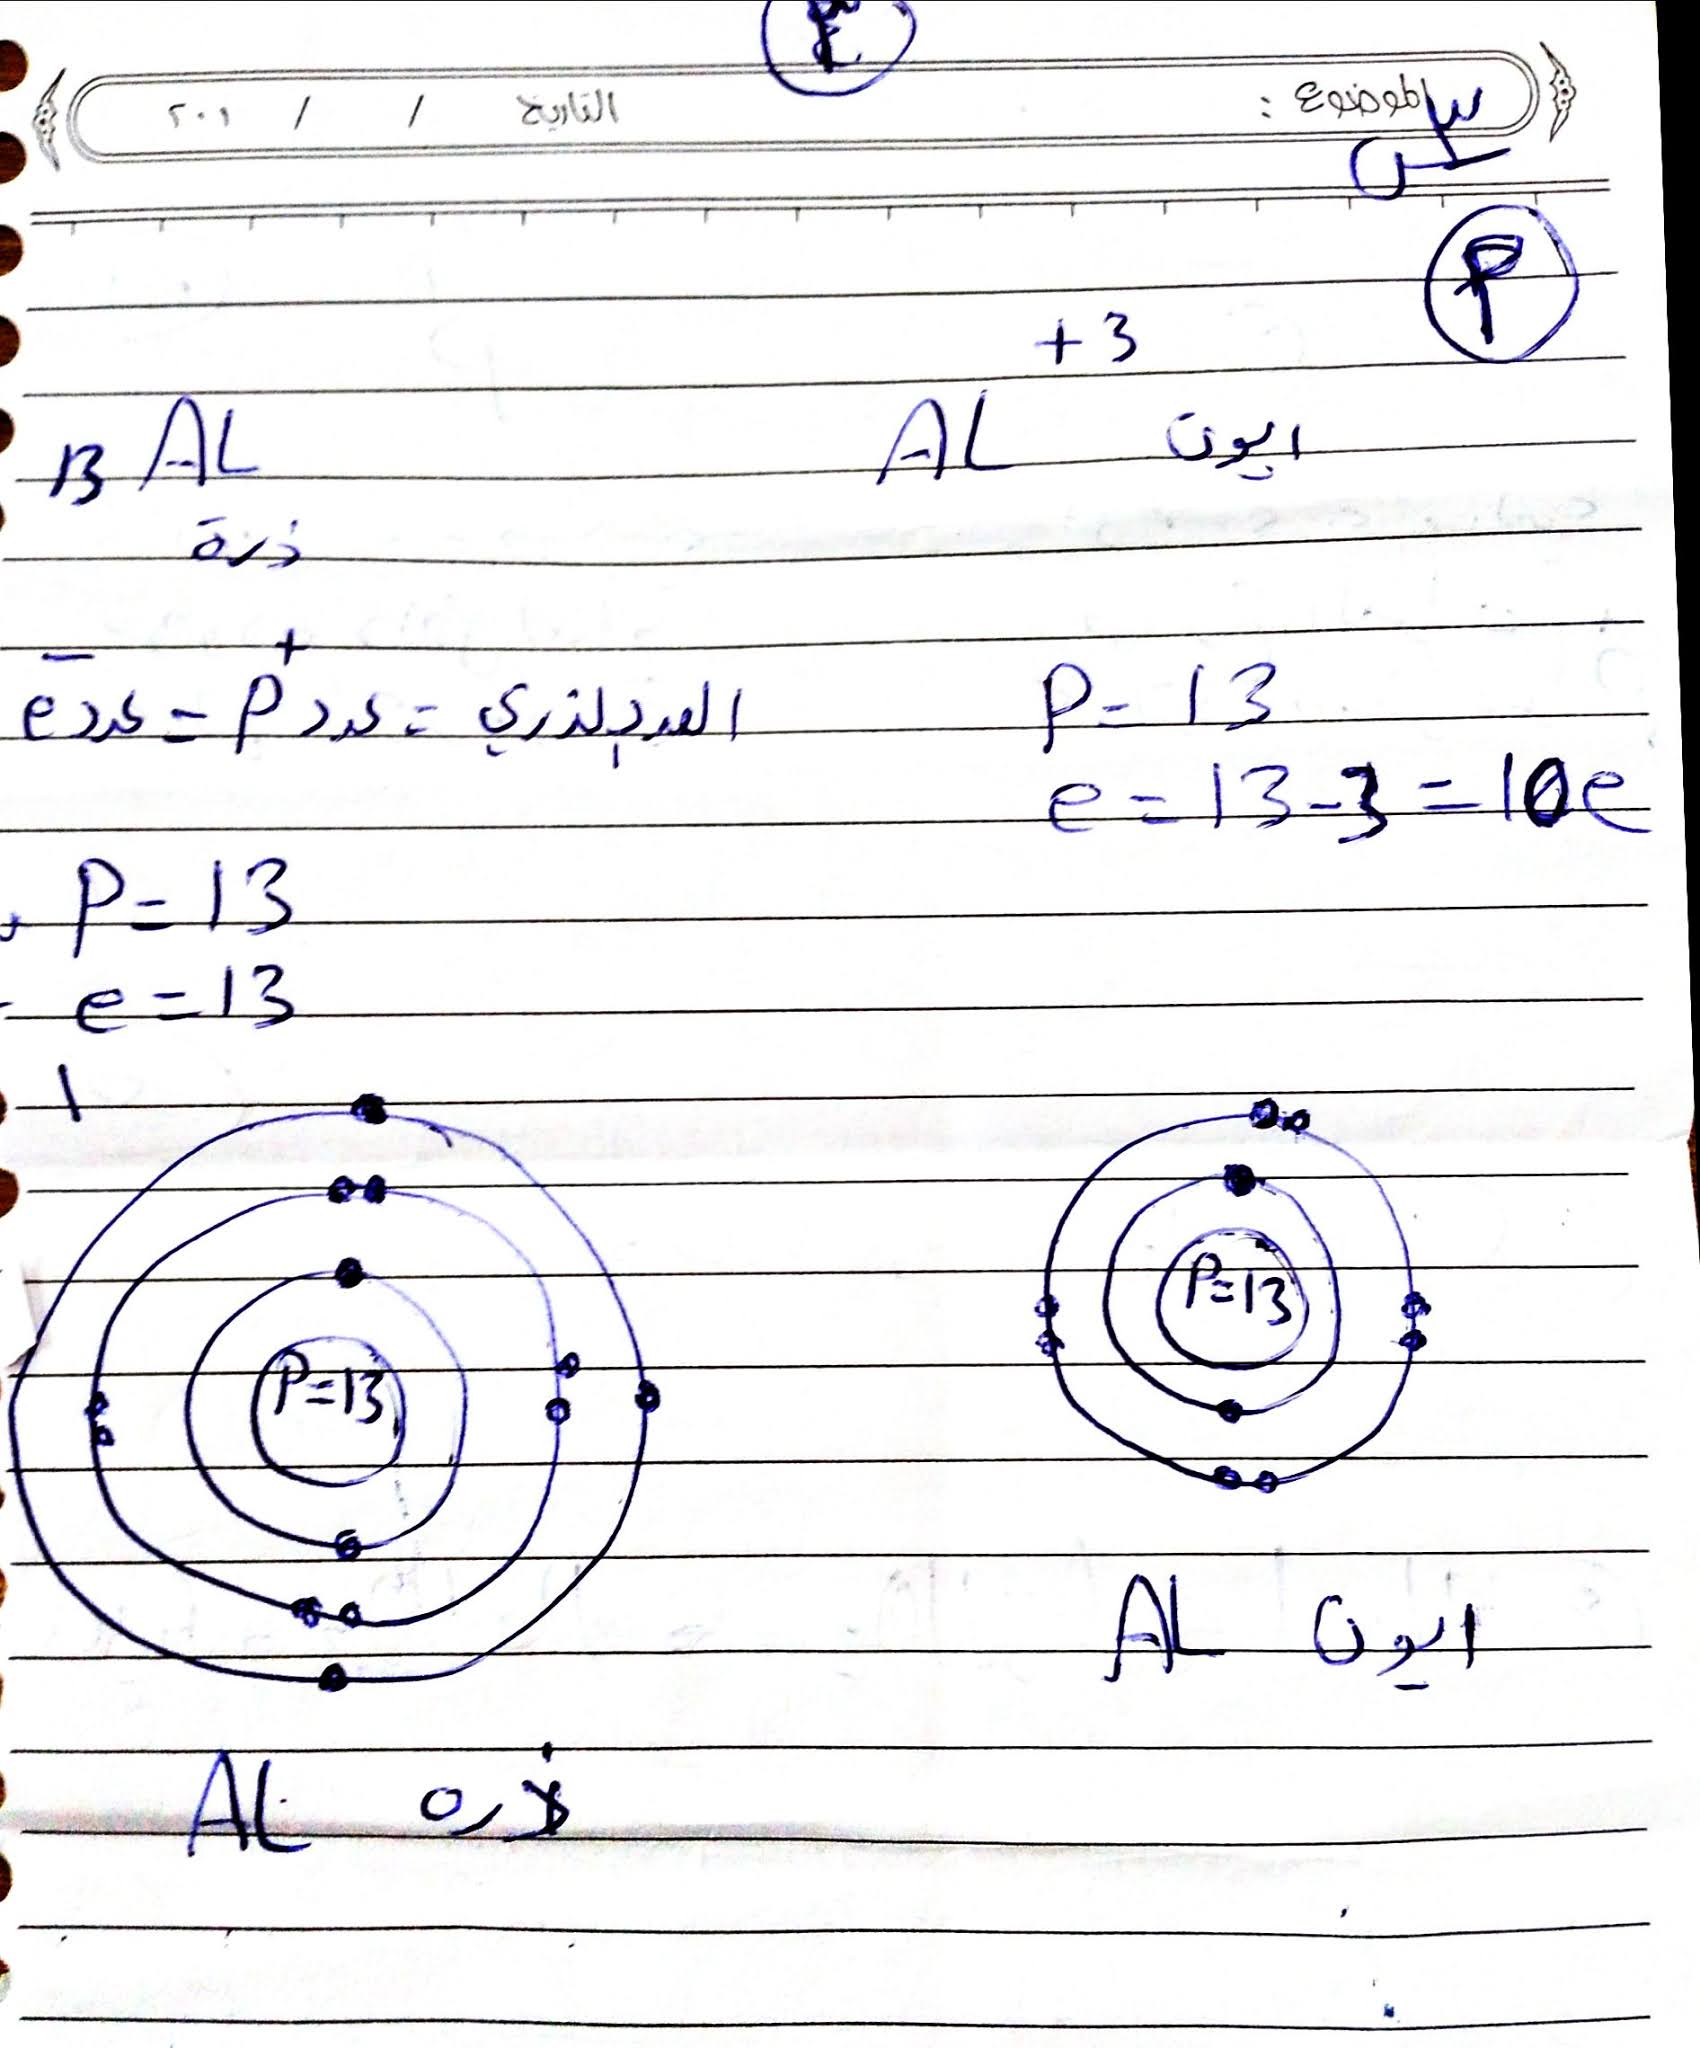 ٤
الموضوع :
التاريخ / / ٢٠١
س٣
P
+3
AL ايون
13 AL
ذرة
العدد الذري = عدد P+ = عدد e-
P = 13
e = 13 - 3 = 10e
P = 13
e = 13
P=13
P=13
ايون AL
ذره AL